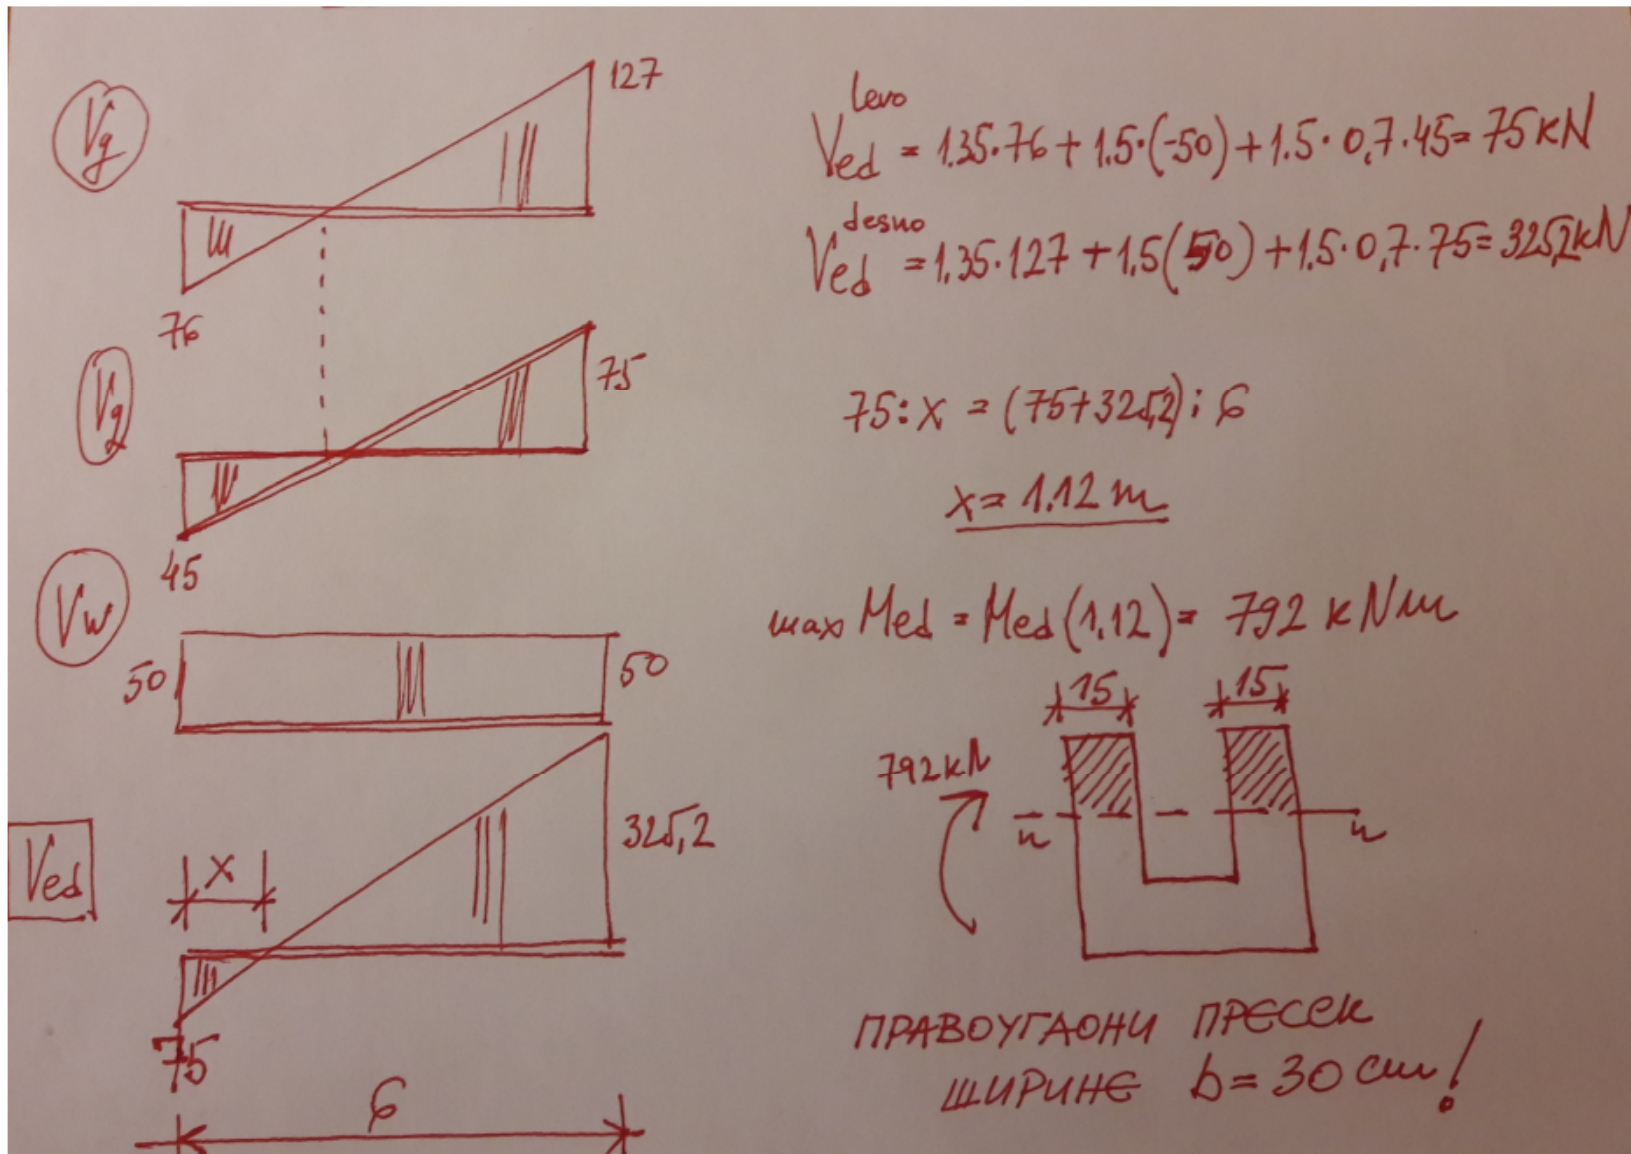 Vg
127
76
Vq
75
45
Vw
50
50
Ved
x
325,2
75
6
Ved levo = 1.35·76 + 1.5·(-50) + 1.5·0,7·45 = 75 kN
Ved desno = 1.35·127 + 1.5(50) + 1.5·0,7·75 = 325,2 kN
75:x = (75+325,2):6
x = 1.12 m
max Med = Med(1.12) = 792 kNm
15
15
792 kN
n
n
ПРАВОУГАОНИ ПРЕСЕК
ШИРИНЕ b = 30 cm!